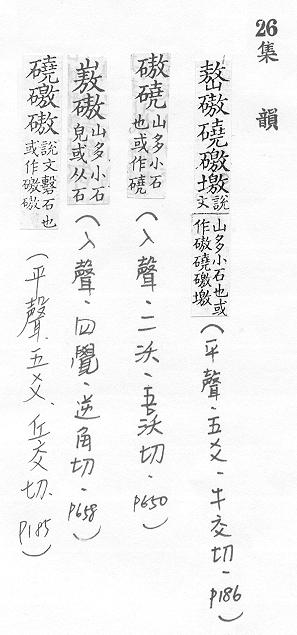 26
集韻
嶅磝磽礉墽說文山多小石也或作磝磽礉墽(平聲·五爻·牛交切·p186)
磝磽山多小石也或作磽(入聲·二沃·吾沃切·p650)
嶅磝山多小石皃或从石(入聲·四覺·逆角切·p658)
磽礉磝說文磬石也或作礉磝(平聲、五爻、丘交切、p185)